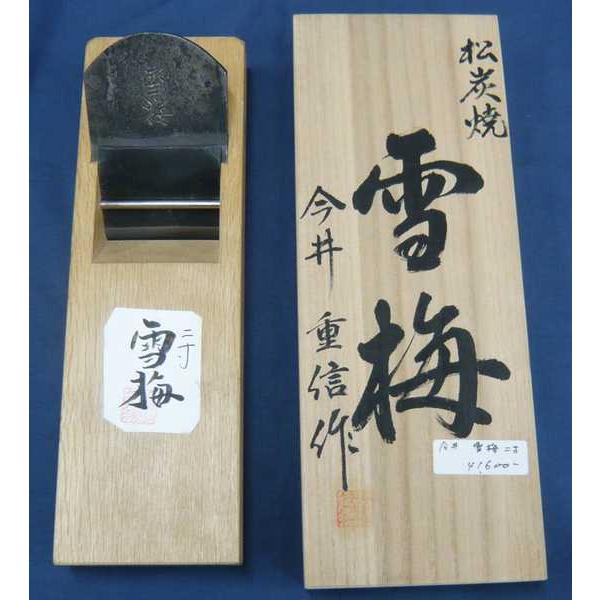 松炭焼
雪梅
今井 重信作
今井 雪梅 二寸
41,600-
二寸
雪梅